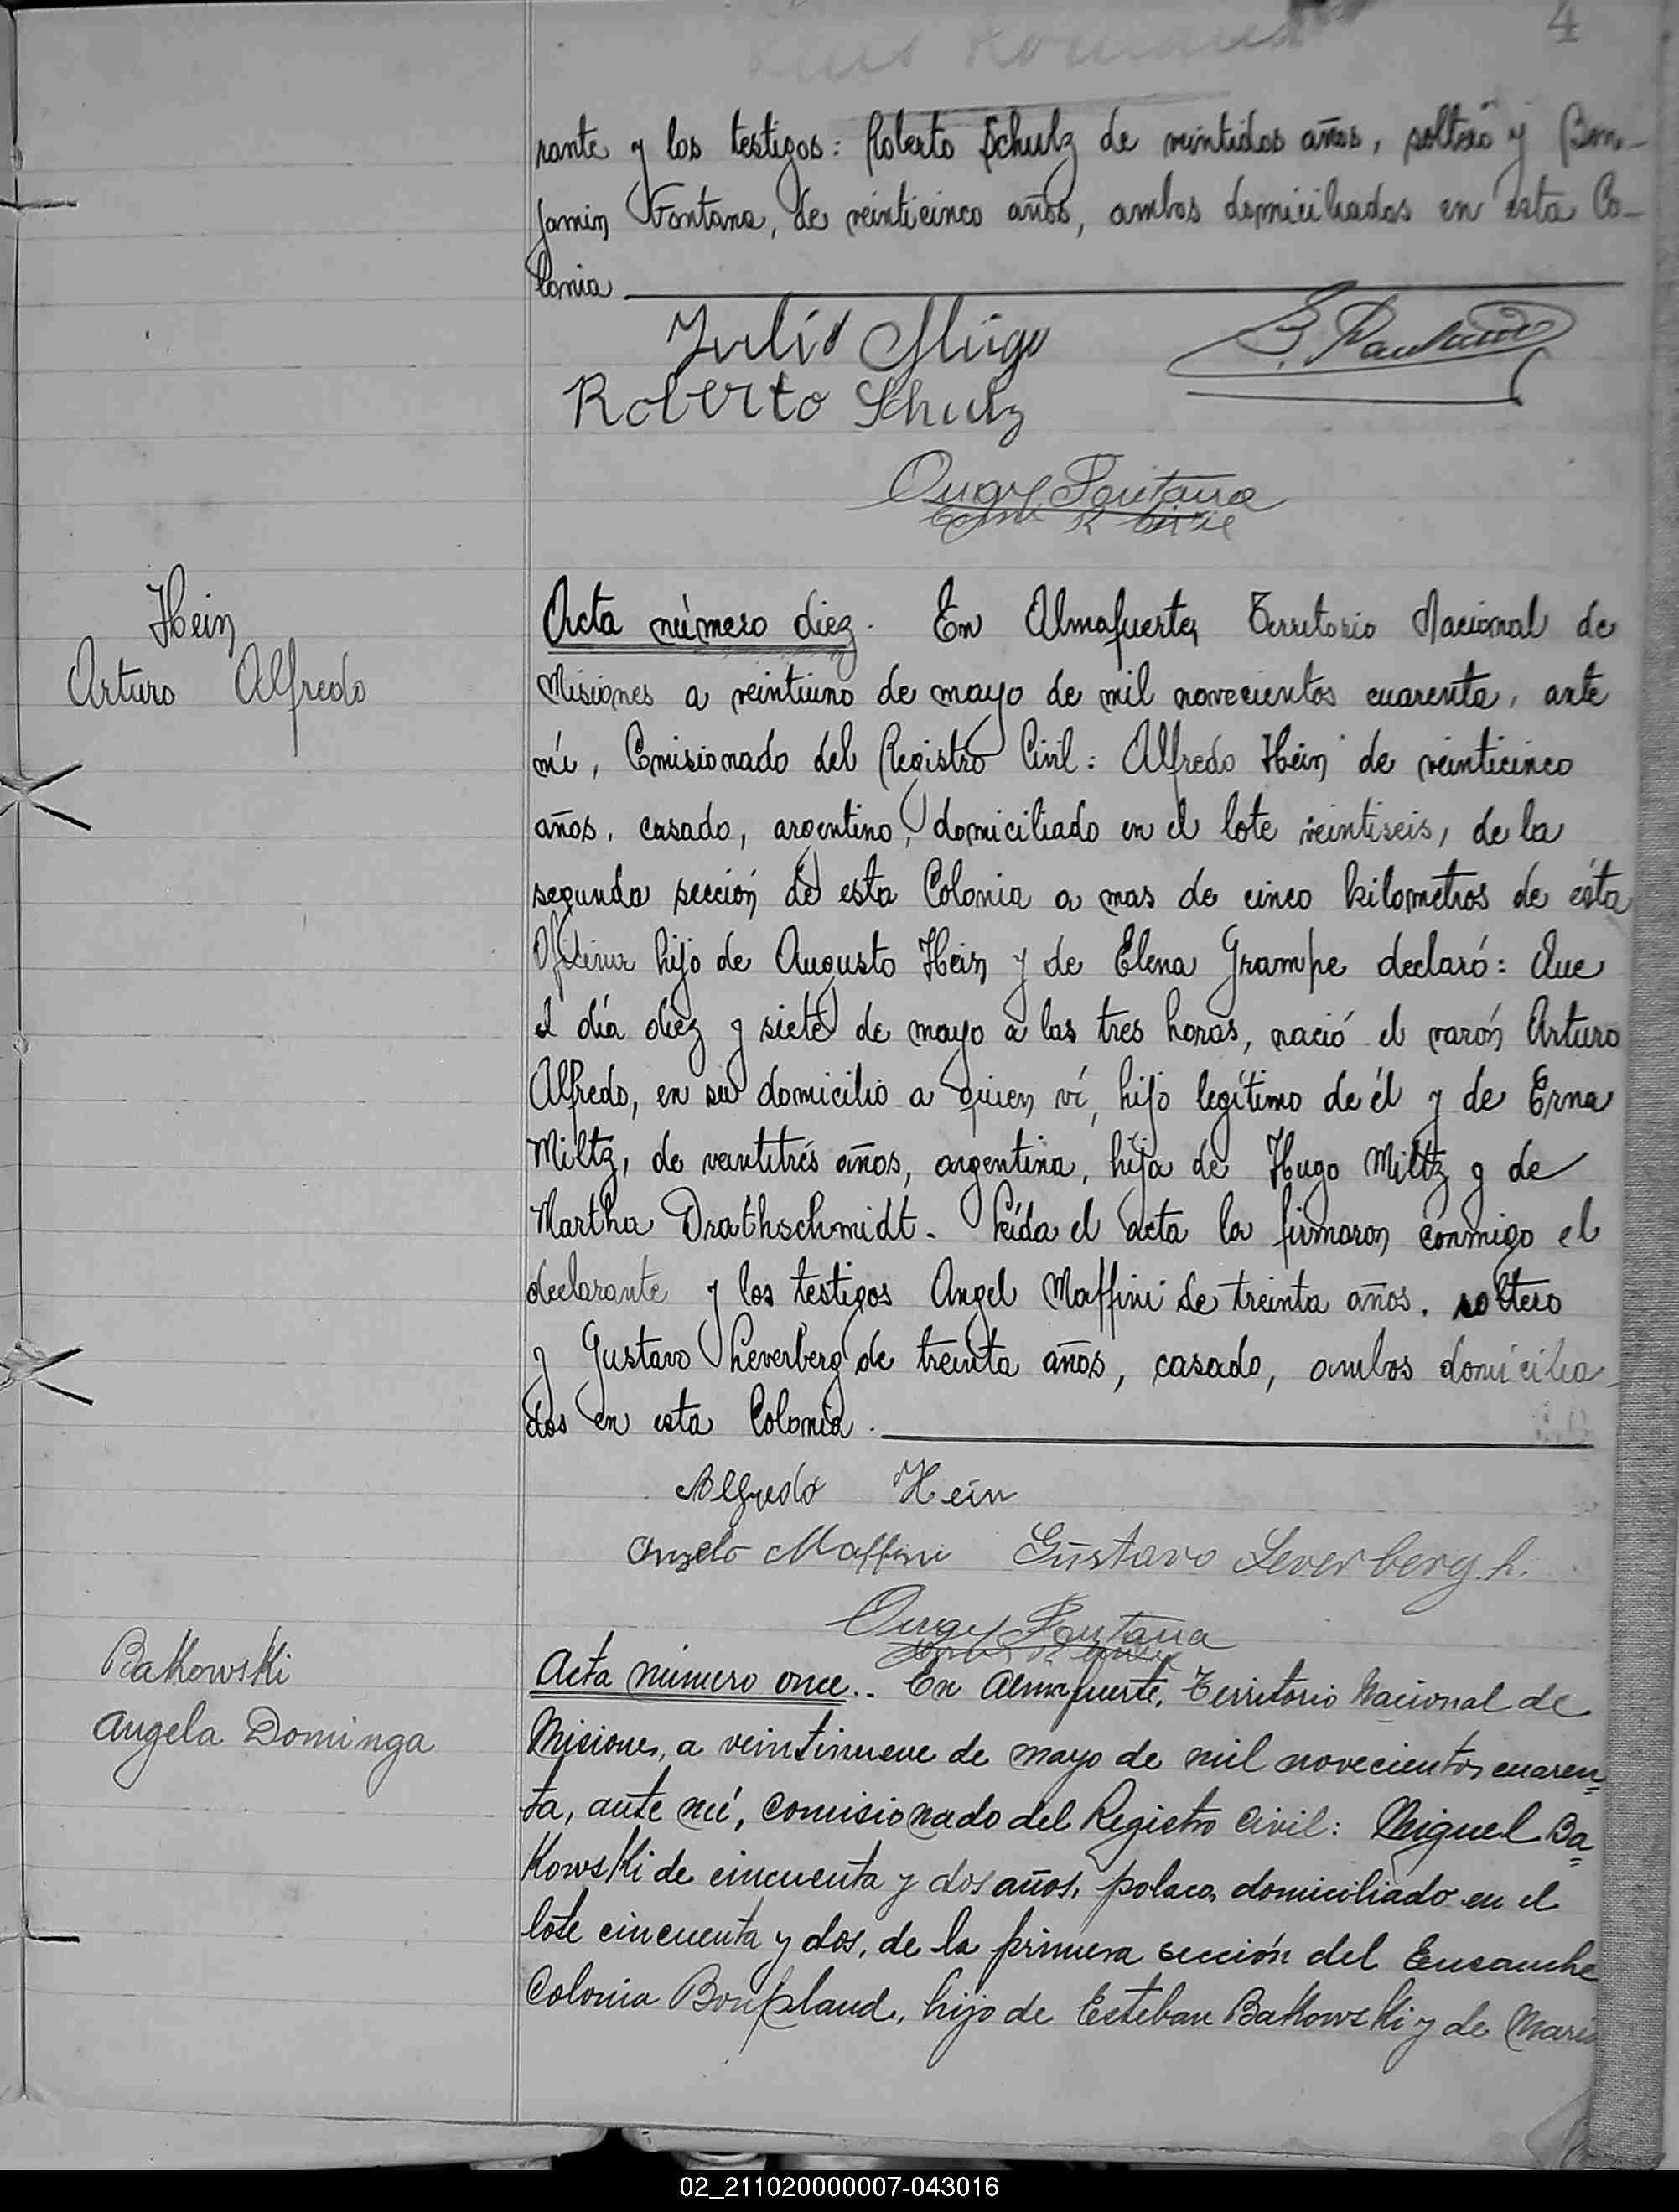 4
rante y los testigos: Roberto Schulz de veintidos años, soltero y Ben-
jamin Fontana, de veinticinco años, ambos domiciliados en esta Co-
lonia
Julio
Roberto Schulz
Fontana
Hein
Arturo Alfredo
Acta número diez. En Almafuerte, Territorio Nacional de
Misiones a veintiuno de mayo de mil novecientos cuarenta, ante
mí, Comisionado del Registro Civil: Alfredo Hein de veinticinco
años, casado, argentino, domiciliado en el lote veintiseis, de la
segunda sección de esta Colonia a mas de cinco kilometros de esta
Oficina hijo de Augusto Hein y de Elena Grampe declaró: Que
el día diez y siete de mayo a las tres horas, nació el varón Arturo
Alfredo, en su domicilio a quien ví, hijo legítimo de él y de Erna
Miltz, de veintitrés años, argentina, hija de Hugo Miltz y de
Martha Drathschmidt. Leída el acta la firmaron conmigo el
declarante y los testigos Angel Maffini de treinta años, soltero
y Gustavo Leverberg de treinta años, casado, ambos domicilia-
dos en esta Colonia.
Alfredo Hein
Angelo Maffini Gustavo Leverberg h.
Fontana
Bakowski
Angela Dominga
Acta número once.. En Almafuerte, Territorio Nacional de
Misiones, a veintinueve de mayo de mil novecientos cuaren=
ta, ante mí, comisionado del Registro Civil: Miguel Ba=
kowski de cincuenta y dos años, polaco, domiciliado en el
lote cincuenta y dos, de la primera sección del Ensanche
Colonia Bonpland, hijo de Esteban Bakowski y de María
02_211020000007-043016